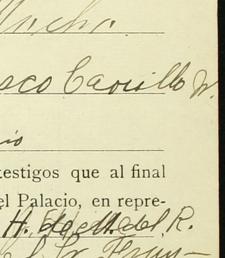 Mucha.
sco Carrillo N.
io
testigos que al final
el Palacio, en repre-
H. de M. del R.